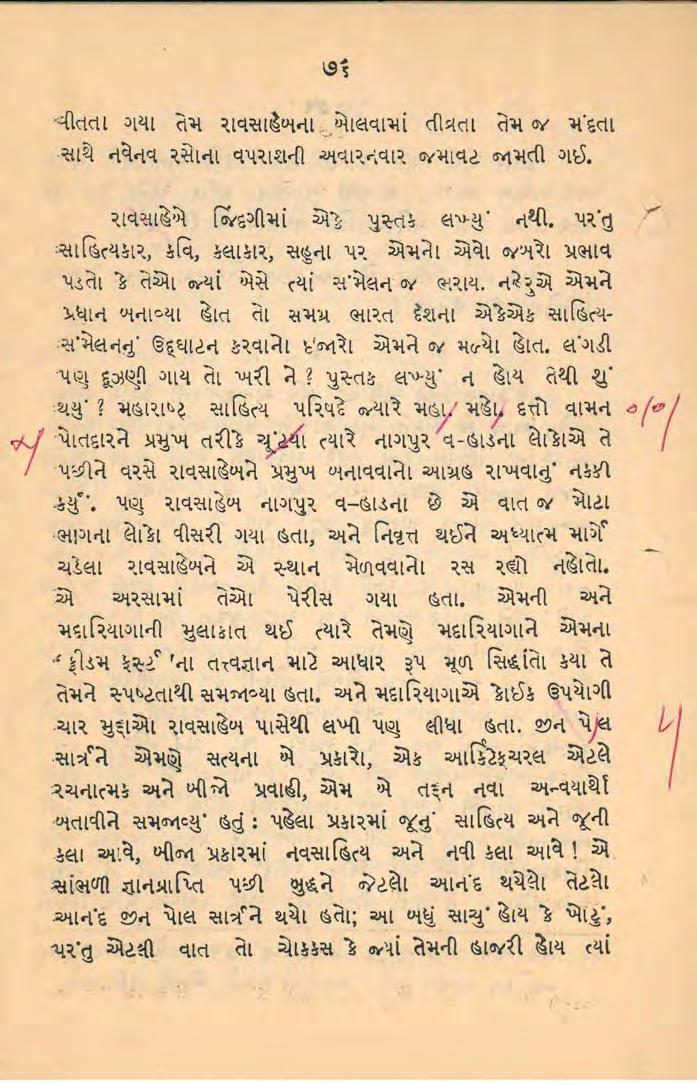 ૭૬
વીતતા ગયા તેમ રાવસાહેબના બોલવામાં તીવ્રતા તેમ જ મંદતા
સાથે નવેનવ રસોના વપરાશની અવારનવાર જમાવટ જામતી ગઈ.
રાવસાહેબે જિંદગીમાં એકે પુસ્તક લખ્યું નથી. પરંતુ
સાહિત્યકાર, કવિ, કલાકાર, સહુના પર એમનો એવો જબરો પ્રભાવ
પડતો કે તેઓ જ્યાં બેસે ત્યાં સંમેલન જ ભરાય. નહેરુએ એમને
પ્રધાન બનાવ્યા હોત તો સમગ્ર ભારત દેશના એકેએક સાહિત્ય-
સંમેલનનું ઉદ્ઘાટન કરવાનો ઇજારો એમને જ મળ્યો હોત. લંગડી
પણ દૂઝણી ગાય તો ખરી ને ? પુસ્તક લખ્યું ન હોય તેથી શું
થયું ? મહારાષ્ટ્ર સાહિત્ય પરિષદે જ્યારે મહા. મહો. દત્તો વામન
પોતદારને પ્રમુખ તરીકે ચૂંટ્યા ત્યારે નાગપુર વ-હાડના લોકોએ તે
પછીને વરસે રાવસાહેબને પ્રમુખ બનાવવાનો આગ્રહ રાખવાનું નક્કી
કર્યું. પણ રાવસાહેબ નાગપુર વ-હાડના છે એ વાત જ મોટા
ભાગના લોકો વીસરી ગયા હતા, અને નિવૃત્ત થઈને અધ્યાત્મ માર્ગે
ચડેલા રાવસાહેબને એ સ્થાન મેળવવાનો રસ રહ્યો નહોતો.
એ અરસામાં તેઓ પેરીસ ગયા હતા. એમની અને
મદારિયાગાની મુલાકાત થઈ ત્યારે તેમણે મદારિયાગાને એમના
“ ફ્રીડમ ફર્સ્ટ ’ના તત્ત્વજ્ઞાન માટે આધાર રૂપ મૂળ સિદ્ધાંતો કયા તે
તેમને સ્પષ્ટતાથી સમજાવ્યા હતા. અને મદારિયાગાએ કોઈક ઉપયોગી
ચાર મુદ્દાઓ રાવસાહેબ પાસેથી લખી પણ લીધા હતા. જીન પેલ
સાર્ત્રને એમણે સત્યના બે પ્રકારો, એક આર્કિટેક્ચરલ એટલે
રચનાત્મક અને બીજો પ્રવાહી, એમ બે તદ્દન નવા અન્વયાર્થો
બતાવીને સમજાવ્યું હતું : પહેલા પ્રકારમાં જૂનું સાહિત્ય અને જૂની
કલા આવે, બીજા પ્રકારમાં નવસાહિત્ય અને નવી કલા આવે ! એ
સાંભળી જ્ઞાનપ્રાપ્તિ પછી બુદ્ધને જેટલો આનંદ થયેલો તેટલો
આનંદ જીન પોલ સાર્ત્રને થયો હતો; આ બધું સાચું હોય કે ખોટું,
પરંતુ એટલી વાત તો ચોક્કસ કે જ્યાં તેમની હાજરી હોય ત્યાં